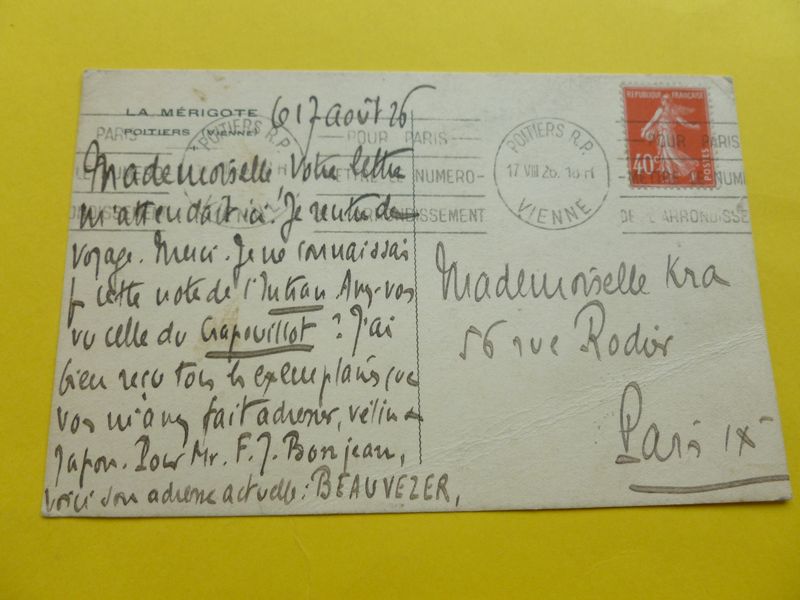 LA MÉRIGOTE
POITIERS (VIENNE)
17 août 26
Mademoiselle Votre lettre
m'attendait ici! Je rentre de
voyage. Merci. Je ne connaissais
p. cette note de l'Intran Avez-vos
vu celle du Crapouillot? J'ai
bien reçu tous les exemplaires que
vos m'avez fait adresser, vélin &
Japon. Pour Mr. F. J. Bonjean,
voici son adresse actuelle: BEAUVEZER,
POITIERS R.P.
17 VIII 26. 18 H
VIENNE
POUR PARIS
NUMERO-
DE L'ARRONDISSE
RÉPUBLIQUE FRANÇAISE
40c
POSTES
Mademoiselle Kra
56 rue Rodier
Paris IXe